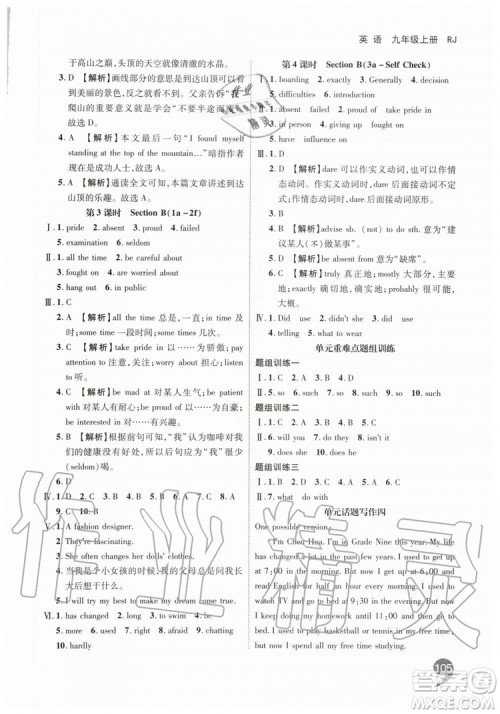 英语 九年级上册 RJ
于高山之巅，头顶的天空就像清澈的水晶。
3. D 【解析】画线部分意为"我四周都是难以置信的美丽的景色"，结合上下文可知达到山顶爬山之苦变得值得。故选 D。
4. A 【解析】本文最后一句 "I found myself standing at the top of the mountain…" 暗指作者已经成功地到达山顶。故选 A。
5. A 【解析】通读全文可知，本文主要讲述到达山顶的乐趣。故选 A。
第 3 课时 Section B(1a-2f)
Ⅰ. 1. pride 2. absent 3. proud 4. general
5. examination 6. seldom
Ⅱ. 1. all the time 2. be careful about
3. fought on 4. are worried about
5. hang out 6. in public
Ⅲ. 1. C
2. A 【解析】all the time 总是，一直；in time 及时；on time 按时；sometimes 有时；several times 几次，好几次。
3. C 【解析】take pride in 以……为骄傲；pay attention to 注意……；worry about 担心……。
4. C 【解析】be mad at 对某人生气；be patient with 对某人有耐心；be proud of 以……为自豪；be interested in 对……感兴趣。
5. B 【解析】根据前句可知，"我"认为咖啡对"我"的健康有害，因此"我"很少(seldom)喝。
6. D
Ⅳ. 1. D 2. C 3. A 4. A 5. C 6. C 7. D 8. A
9. C 10. B
Ⅴ. 1. A fashion designer.
2. They are fascinating.
3. She often changes her dolls' clothes.
4. 当我是个小女孩的时候，我的父母总是问我长大后想做什么。
5. I will try my best to make my dream come true.
Ⅵ. 1. of 2. after 3. for 4. was 5. became
6. moved 7. are 8. parents 9. another
10. hardly
第 4 课时 Section B(3a-Self Check)
Ⅰ. 1. boarding 2. exactly 3. general 4. dared
5. difficulties 6. introduction
Ⅱ. 1. absent from 2. proud of 3. take pride in
4. have influence on
Ⅲ. 1. D 【解析】dare 可以作实义动词，也可以作情态动词。作情态动词时，dare 后接动词原形；作实义动词时，dare 后面接动词不定式或动词原形。
2. B 【解析】advise sb. (not) to do sth. 意为"建议某人(不)做某事"。
3. B 【解析】be absent from 意为"缺席"。
4. C 【解析】truly 真正地；mostly 大部分地；exactly 确切地，确切地说；suddenly 突然地。
5. B
Ⅳ. 1. from 2. well 3. influence 4. because
5. to 6. until 7. felt 8. understand 9. use
10. wonder
单元重难点题组训练
题组训练一
Ⅰ. 1. C 2. C 3. C 4. B 5. C
题组训练二
Ⅰ. 1. D 2. C 3. B 4. A 5. B
Ⅱ. 1. will you 2. don't you 3. does he
4. didn't she 5. is she
题组训练三
Ⅰ. 1. D 2. B 3. B 4. C
Ⅱ. 1. what do with
单元话题写作四
One possible version:
I'm Chen Hua. I'm in Grade Nine this year. My life has changed a lot in the past few years. I used to get up at 7:00, but now I get up at 6:00 and read English for half an hour every morning. I used to watch TV and go to bed at 9:00, but now I hardly ever watch TV because I have to do my homework. I am always busy with my homework in the evening. I used to play football with my
105
作业精灵